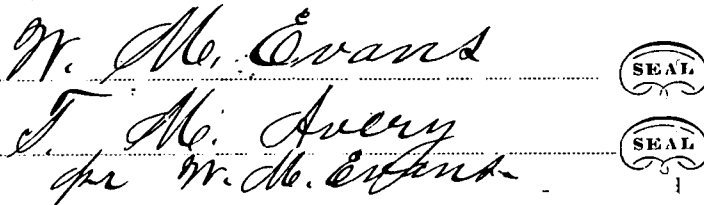 W. M. Evans SEAL
T. M. Avery SEAL
pr W. M. Evans